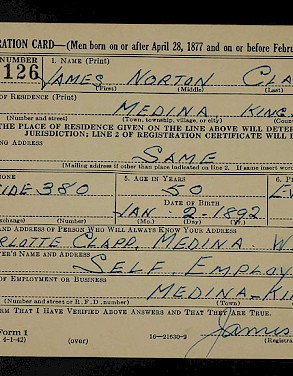 RATION CARD—(Men born on or after April 28, 1877 and on or before Febru
NUMBER
1. NAME (Print)
126
JAMES NORTON CLA
(First) (Middle) (Last)
OF RESIDENCE (Print)
MEDINA KING
(Number and street) (Town, township, village, or city) (County)
THE PLACE OF RESIDENCE GIVEN ON THE LINE ABOVE WILL DETER
JURISDICTION; LINE 2 OF REGISTRATION CERTIFICATE WILL B
NG ADDRESS
SAME
(Mailing address if other than place indicated on line 2. If same insert word
HONE
5. AGE IN YEARS
6. P
SIDE 380
50
EV
DATE OF BIRTH
JAN. 2-1892
change) (Number) (Mo.) (Day) (Yr.)
AND ADDRESS OF PERSON WHO WILL ALWAYS KNOW YOUR ADDRESS
RLOTTE CLAPP, MEDINA. W
ER'S NAME AND ADDRESS
SELF EMPLOY
OF EMPLOYMENT OR BUSINESS
MEDINA-KIN
(Number and street or R. F. D. number) (Town)
IRM THAT I HAVE VERIFIED ABOVE ANSWERS AND THAT THEY ARE TRUE.
Form 1
4-1-42) (over) 16—21630-2
James
(Registra